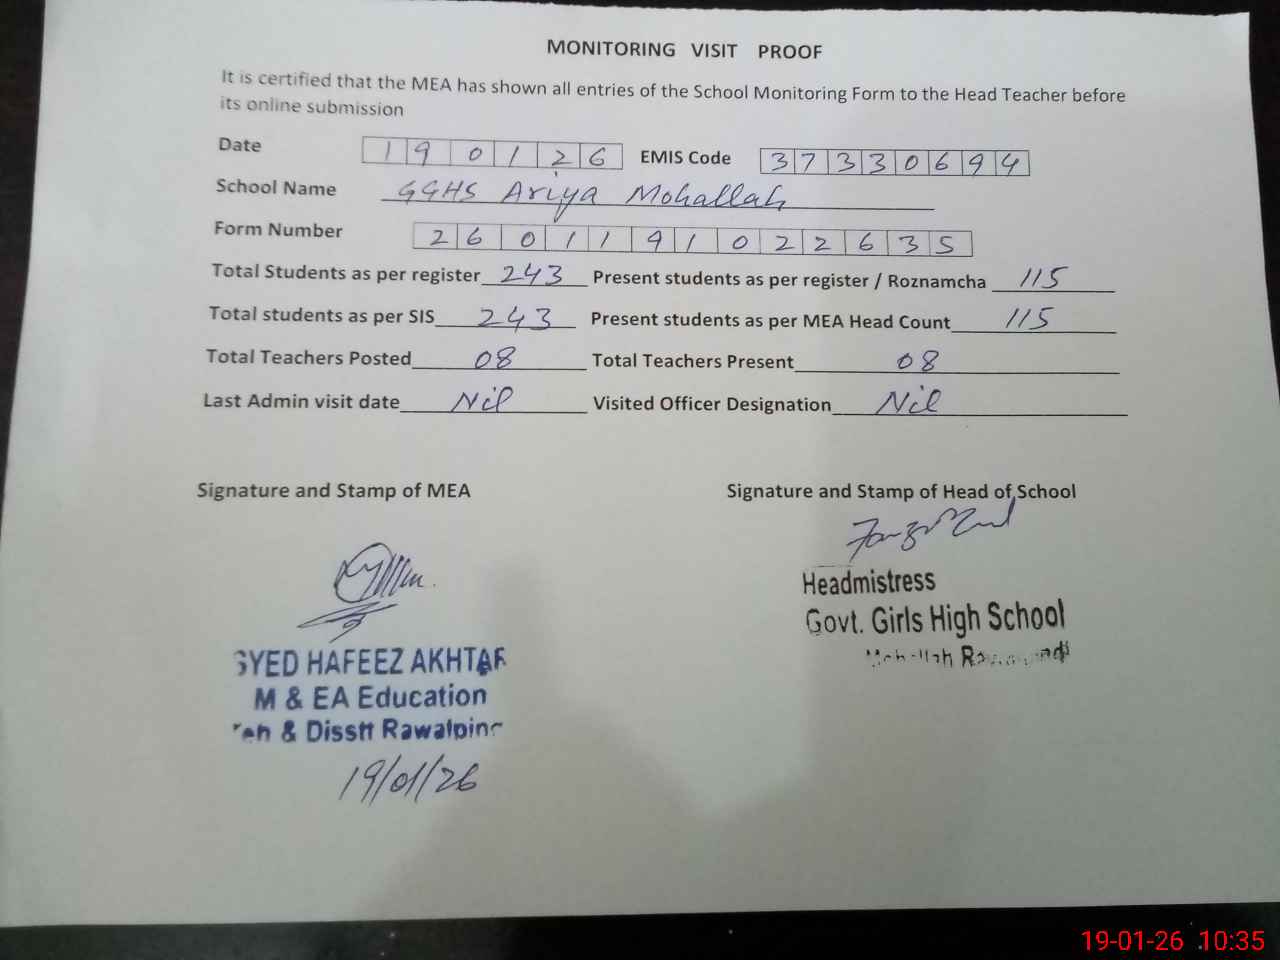 MONITORING VISIT PROOF
It is certified that the MEA has shown all entries of the School Monitoring Form to the Head Teacher before
its online submission
Date 190126 EMIS Code 37330694
School Name GGHS Ariya Mohallah
Form Number 2601191022635
Total Students as per register 243 Present students as per register / Roznamcha 115
Total students as per SIS 243 Present students as per MEA Head Count 115
Total Teachers Posted 08 Total Teachers Present 08
Last Admin visit date Nil Visited Officer Designation Nil
Signature and Stamp of MEA Signature and Stamp of Head of School
Headmistress
Govt. Girls High School
SYED HAFEEZ AKHTAR
M & EA Education
& Disstt
19/01/26
19-01-26 10:35